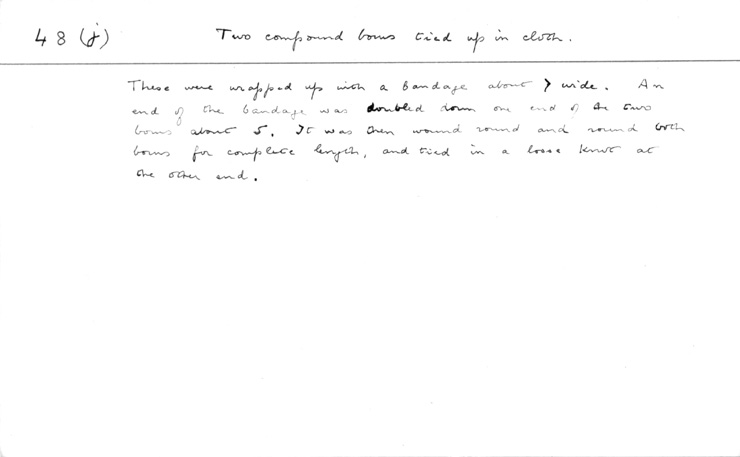 48 (j) Two compound bows tied up in cloth.
These were wrapped up with a bandage about 7 wide. An
end of the bandage was doubled down one end of the two
bows about 5. It was then wound round and round both
bows for complete length, and tied in a loose knot at
the other end.